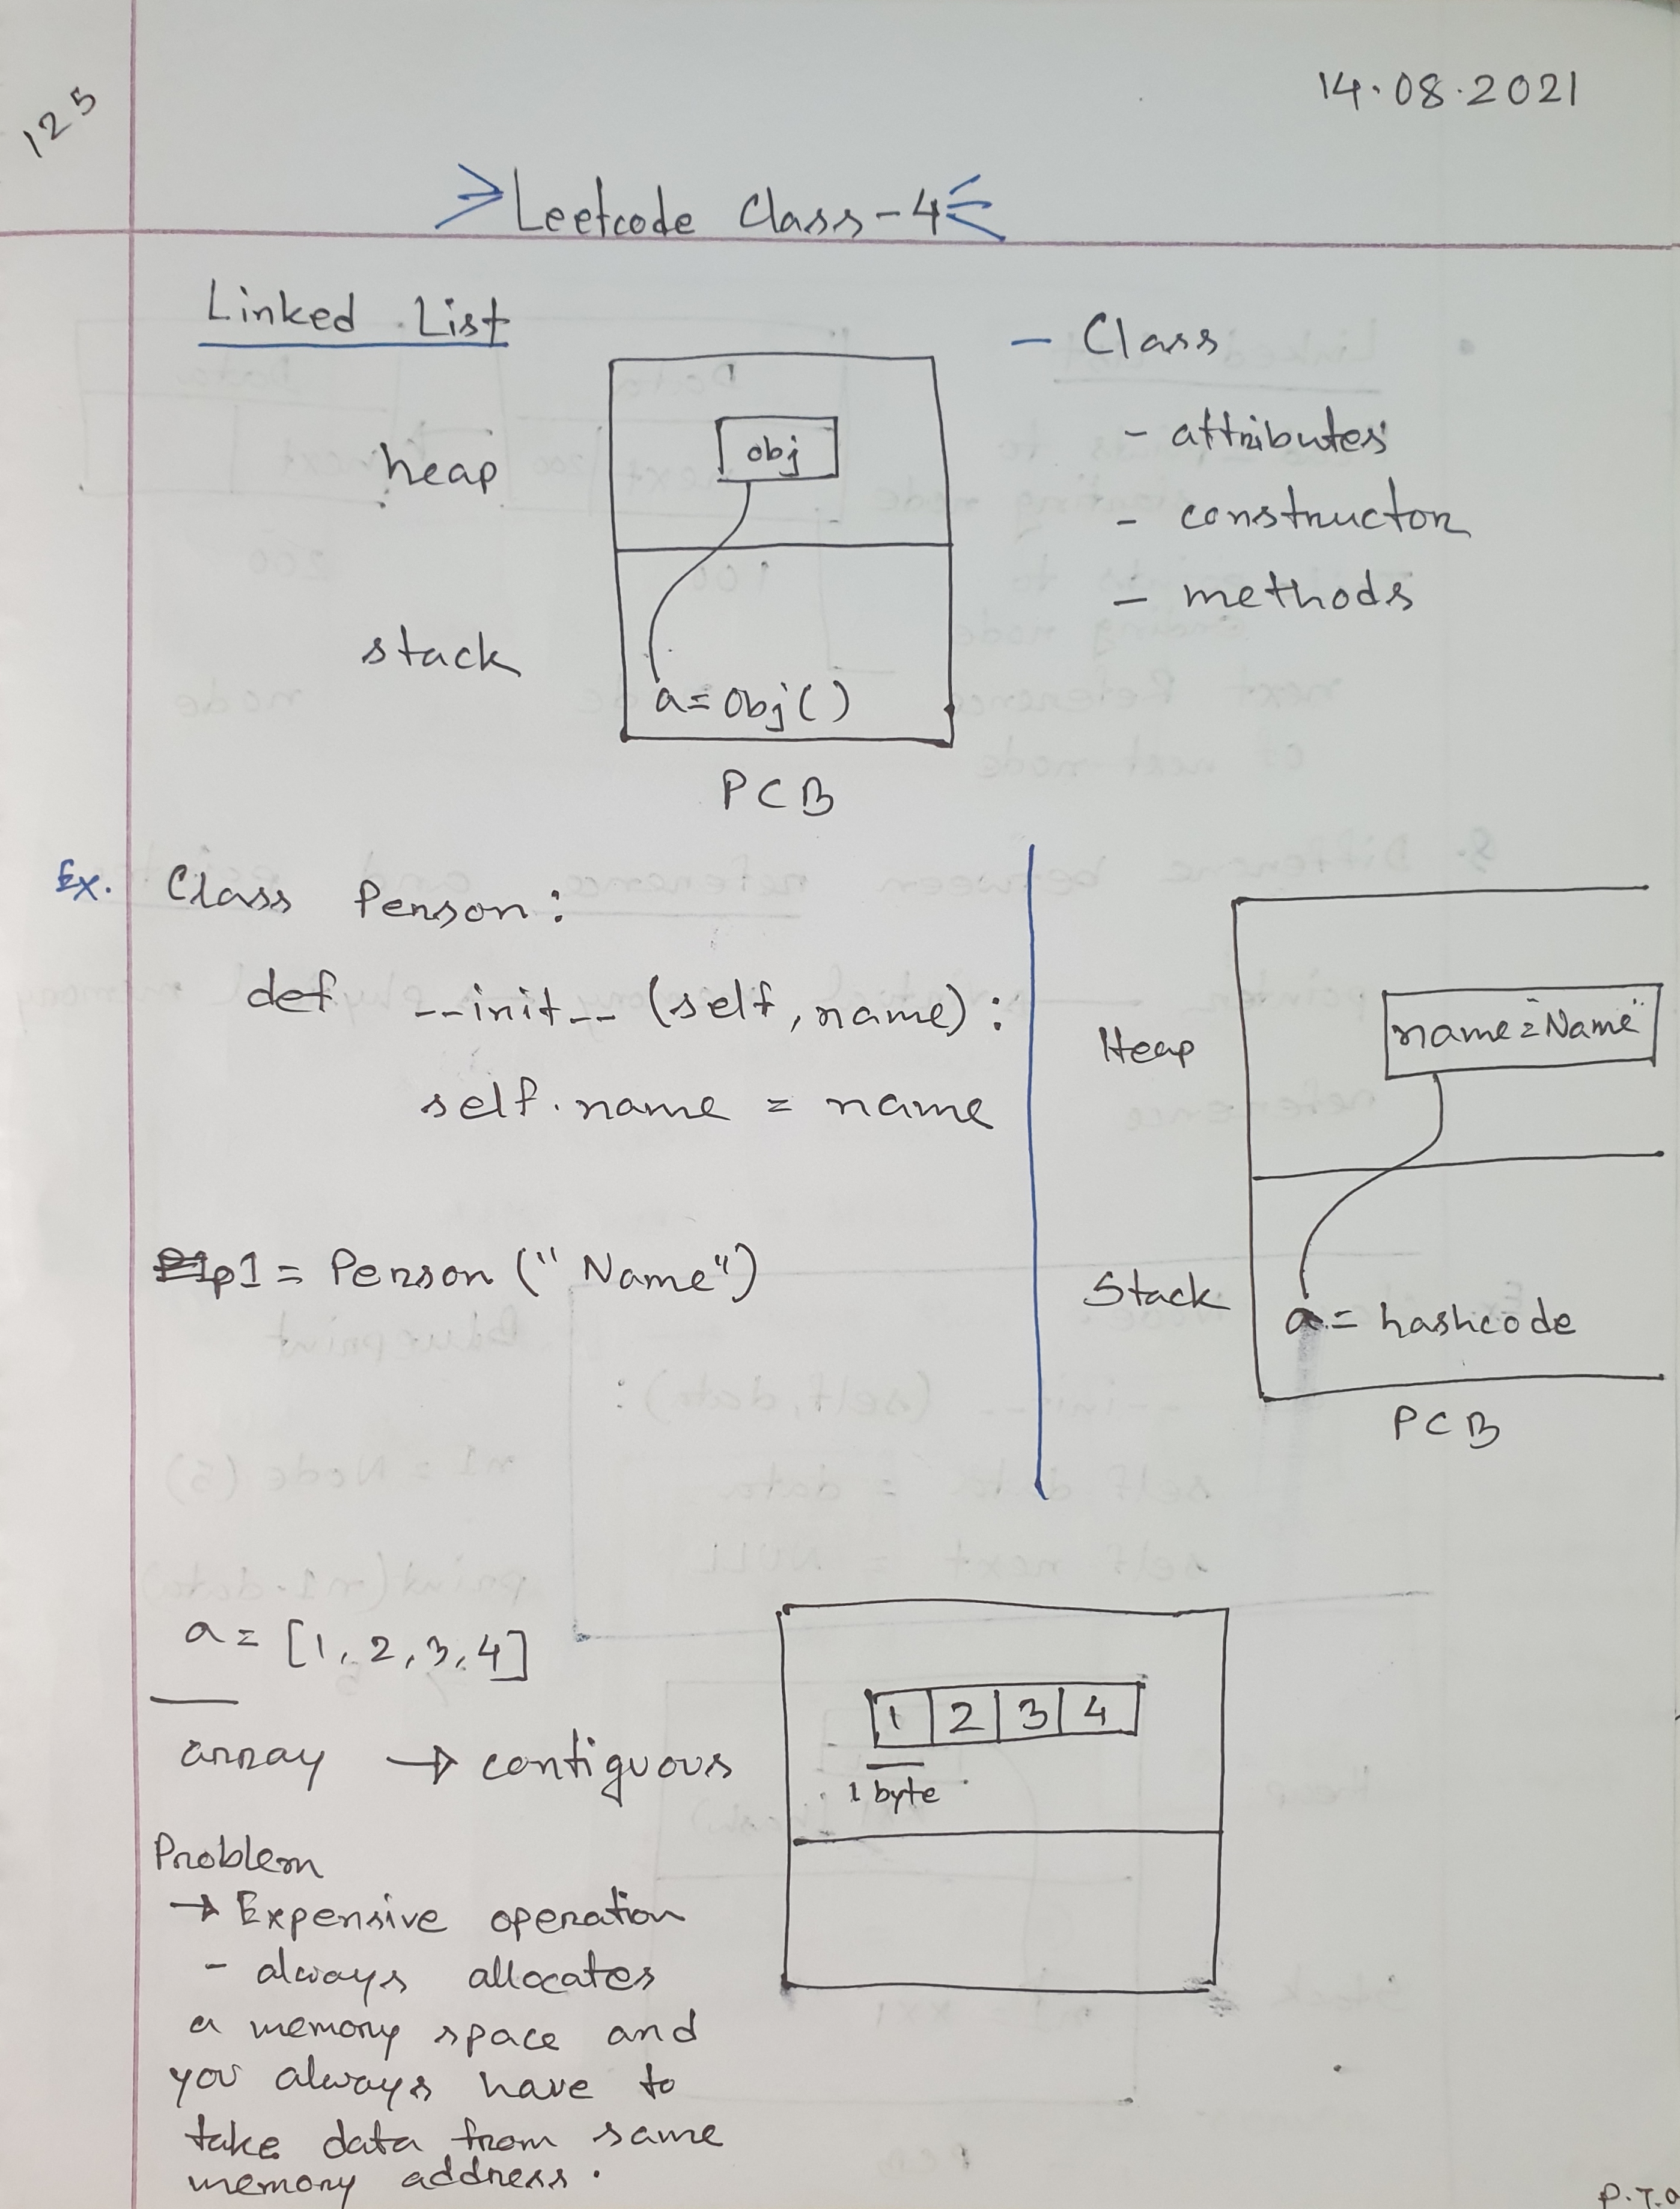 125
14.08.2021
Leetcode Class-4
Linked List
heap
obj
stack
a=obj()
PCB
- Class
- attributes
- constructor
- methods
Ex. Class Person:
def __init__ (self, name):
self.name = name
p1 = Person ("Name")
Heap
name="Name"
Stack
a = hashcode
PCB
a = [1, 2, 3, 4]
array → contiguous
1 2 3 4
1 byte
Problem
→ Expensive operation
- always allocates
a memory space and
you always have to
take data from same
memory address.
P.T.O